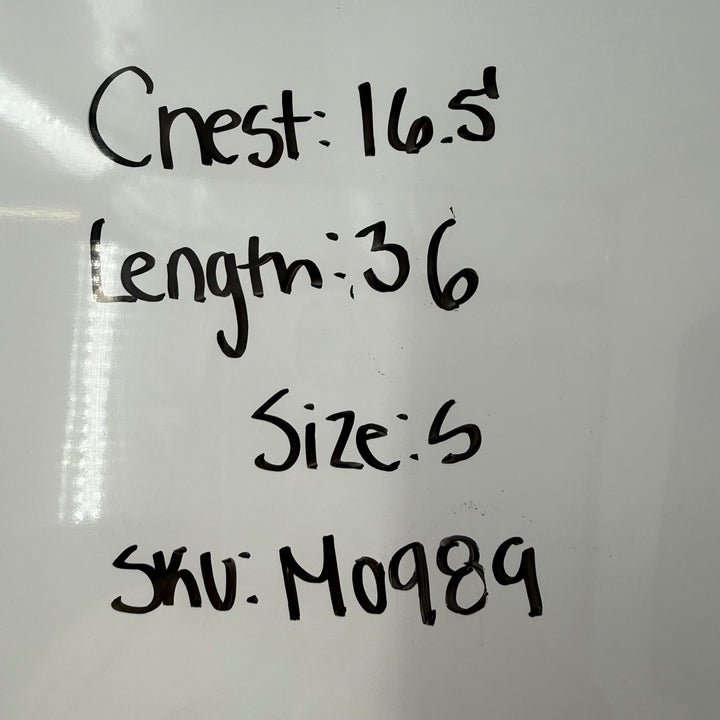 Chest: 16.5"
Length: 36
Size: S
SKU: M0989